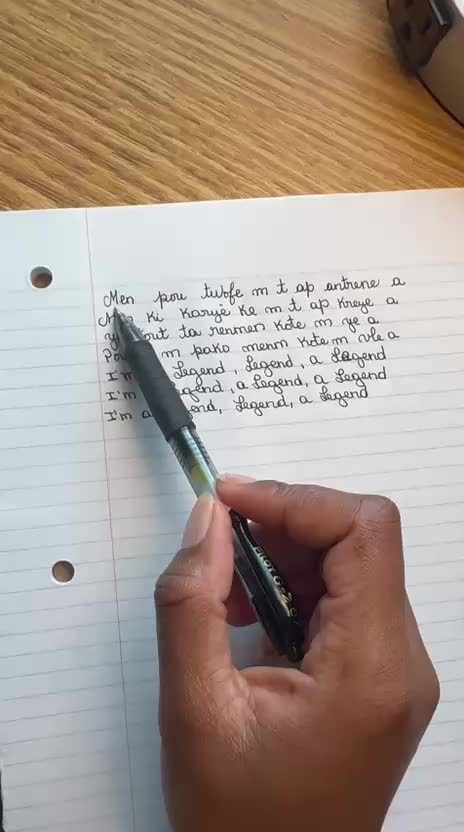 Men pou twofe m t ap antrene a
ki Karyè Ke m t ap Kreye a
ta renmen Kote m ye a
m pako menm Kote m vle a
I'm Legend, Legend, a Legend
I'm Legend, a Legend, a Legend
I'm a Legend, a Legend